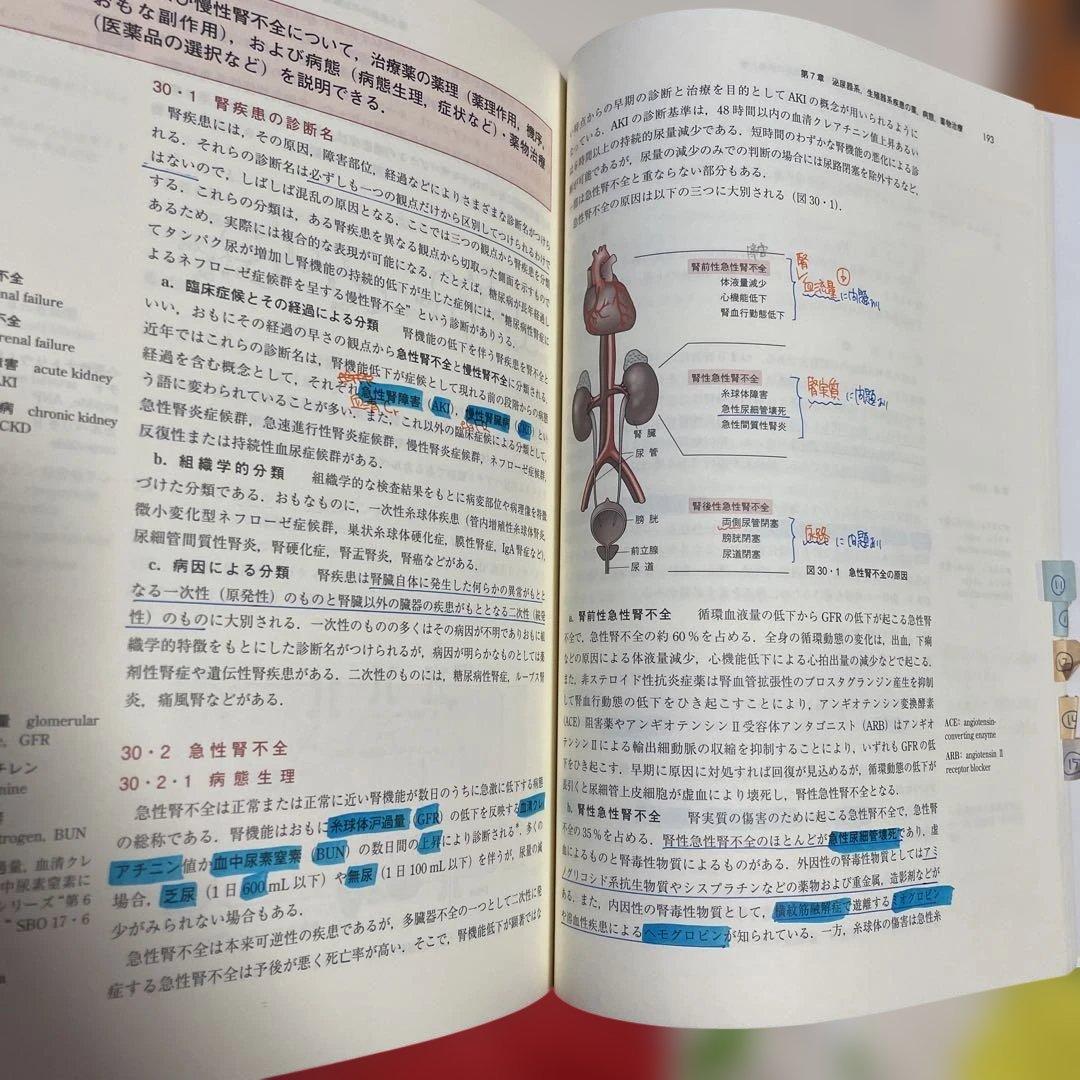 び慢性腎不全について，治療薬の薬理（薬理作用，機序，
おもな副作用），および病態（病態生理，症状など）・薬物治療
（医薬品の選択など）を説明できる．
30・1 腎疾患の診断名
腎疾患には，その原因，障害部位，経過などによりさまざまな診断名がつけら
れる．それらの診断名は必ずしも一つの観点だけから区別してつけられるわけで
はないので，しばしば混乱の原因となる．ここでは三つの観点から腎疾患を分類
する．これらの分類は，ある腎疾患を異なる観点から切取った側面を示すもので
あるため，実際には複合的な表現が可能になる．たとえば，糖尿病が長年経過し
てタンパク尿が増加し腎機能の持続的低下が生じた症例には，“糖尿病性腎症に
よるネフローゼ症候群を呈する慢性腎不全”という診断がありうる．
a．臨床症候とその経過による分類 腎機能の低下を伴う腎疾患を腎不全と
いい，おもにその経過の早さの観点から急性腎不全と慢性腎不全に分類される．
近年ではこれらの診断名は，腎機能低下が症候として現れる前の段階からの病態
経過を含む概念として，それぞれ急性腎障害（AKI），慢性腎臓病（CKD）とい
う語に変わられていることが多い．また，これ以外の臨床症候による分類として，
急性腎炎症候群，急速進行性腎炎症候群，慢性腎炎症候群，ネフローゼ症候群，
反復性または持続性血尿症候群がある．
b．組織学的分類 組織学的な検査結果をもとに病変部位や病理像を特徴
づけた分類である．おもなものに，一次性糸球体疾患（管内増殖性糸球体腎炎，
微小変化型ネフローゼ症候群，巣状糸球体硬化症，膜性腎症，IgA腎症など），
尿細管間質性腎炎，腎硬化症，腎盂腎炎，腎癌などがある．
c．病因による分類 腎疾患は腎臓自体に発生した何らかの異常がもとと
なる一次性（原発性）のものと腎臓以外の臓器の疾患がもととなる二次性（続発
性）のものに大別される．一次性のものの多くはその病因が不明でありおもに組
織学的特徴をもとにした診断名がつけられるが，病因が明らかなものとしては薬
剤性腎症や遺伝性腎疾患がある．二次性のものには，糖尿病性腎症，ループス腎
炎，痛風腎などがある．
30・2 急性腎不全
30・2・1 病態生理
急性腎不全は正常または正常に近い腎機能が数日のうちに急激に低下する病態
の総称である．腎機能はおもに糸球体沪過量（GFR）の低下を反映する血清クレ
アチニン値か血中尿素窒素（BUN）の数日間の上昇により診断される*．多くの
場合，乏尿（1日600 mL以下）や無尿（1日100 mL以下）を伴うが，尿量の減
少がみられない場合もある．
急性腎不全は本来可逆性の疾患であるが，多臓器不全の一つとして二次性に発
症する急性腎不全は予後が悪く死亡率が高い．そこで，腎機能低下が顕著ではな
不全
nal failure
不全
renal failure
障害 acute kidney
AKI
病 chronic kidney
CKD
量 glomerular
e, GFR
チレン
nine
trogen, BUN
過量，血清クレ
中尿素窒素に
シリーズ“第6
” SBO 17・6
第7章 泌尿器系，生殖器系疾患の薬，病態，薬物治療
193
い時点からの早期の診断と治療を目的としてAKIの概念が用いられるように
なっている．AKIの診断基準は，48時間以内の血清クレアチニン値上昇あるい
は6時間以上の持続的尿量減少である．短時間のわずかな腎機能の悪化による診
断が可能であるが，尿量の減少のみでの判断の場合には尿路閉塞を除外するなど，
一部は急性腎不全と重ならない部分もある．
急性腎不全の原因は以下の三つに大別される（図30・1）．
腎前性急性腎不全
体液量減少
心機能低下
腎血行動態低下
腎
血流量に問題あり
腎性急性腎不全
糸球体障害
急性尿細管壊死
急性間質性腎炎
腎実質に問題あり
腎臓
尿管
腎後性急性腎不全
両側尿管閉塞
膀胱閉塞
尿道閉塞
尿路に問題あり
膀胱
前立腺
尿道
図30・1 急性腎不全の原因
a．腎前性急性腎不全 循環血液量の低下からGFRの低下が起こる急性腎
不全で，急性腎不全の約60％を占める．全身の循環動態の変化は，出血，下痢
などの原因による体液量減少，心機能低下による心拍出量の減少などで起こる．
また，非ステロイド性抗炎症薬は腎血管拡張性のプロスタグランジン産生を抑制
して腎血行動態の低下をひき起こすことにより，アンギオテンシン変換酵素
（ACE）阻害薬やアンギオテンシンⅡ受容体アンタゴニスト（ARB）はアンギオ
テンシンⅡによる輸出細動脈の収縮を抑制することにより，いずれもGFRの低
下をひき起こす．早期に原因に対処すれば回復が見込めるが，循環動態の低下が
長引くと尿細管上皮細胞が虚血により壊死し，腎性急性腎不全となる．
ACE: angiotensin-
converting enzyme
ARB: angiotensin Ⅱ
receptor blocker
b．腎性急性腎不全 腎実質の傷害のために起こる急性腎不全で，急性腎
不全の35％を占める．腎性急性腎不全のほとんどが急性尿細管壊死であり，虚
血によるものと腎毒性物質によるものがある．外因性の腎毒性物質としてはアミ
ノグリコシド系抗生物質やシスプラチンなどの薬物および重金属，造影剤などが
ある．また，内因性の腎毒性物質として，横紋筋融解症で遊離するミオグロビン
や溶血性疾患によるヘモグロビンが知られている．一方，糸球体の傷害は急性糸
11
14
15